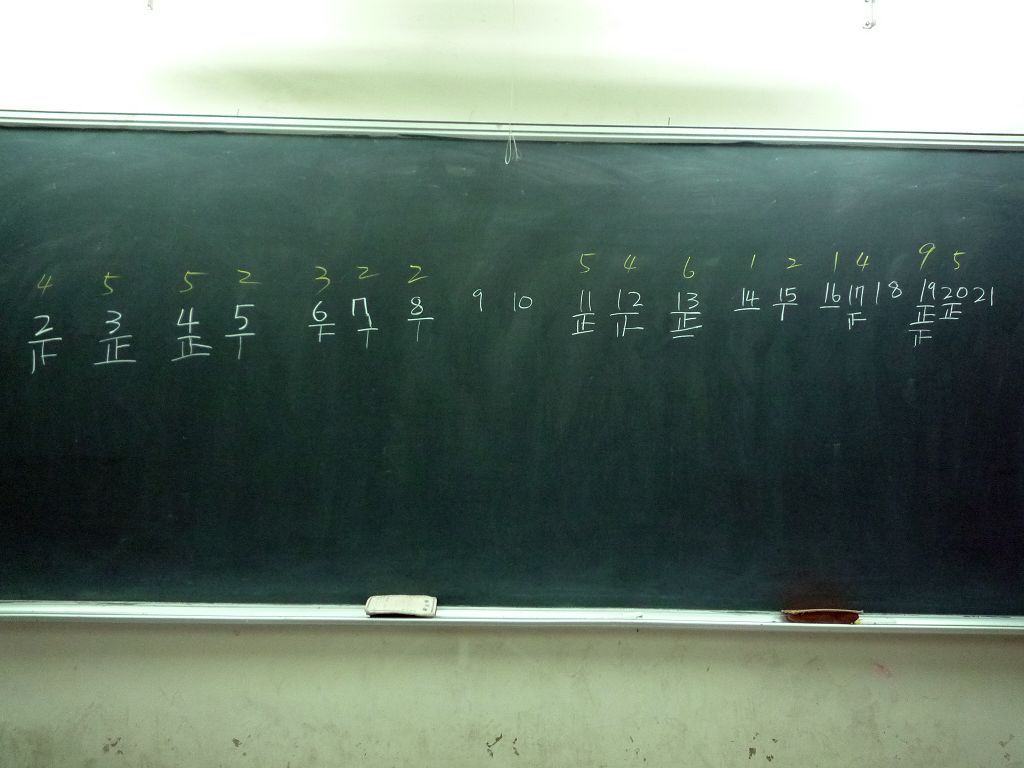 4 5 5 2 3 2 2 5 4 6 1 2 1 4 9 5
2 3 4 5 6 7 8 9 10 11 12 13 14 15 16 17 18 19 20 21
正 正 正 正
正